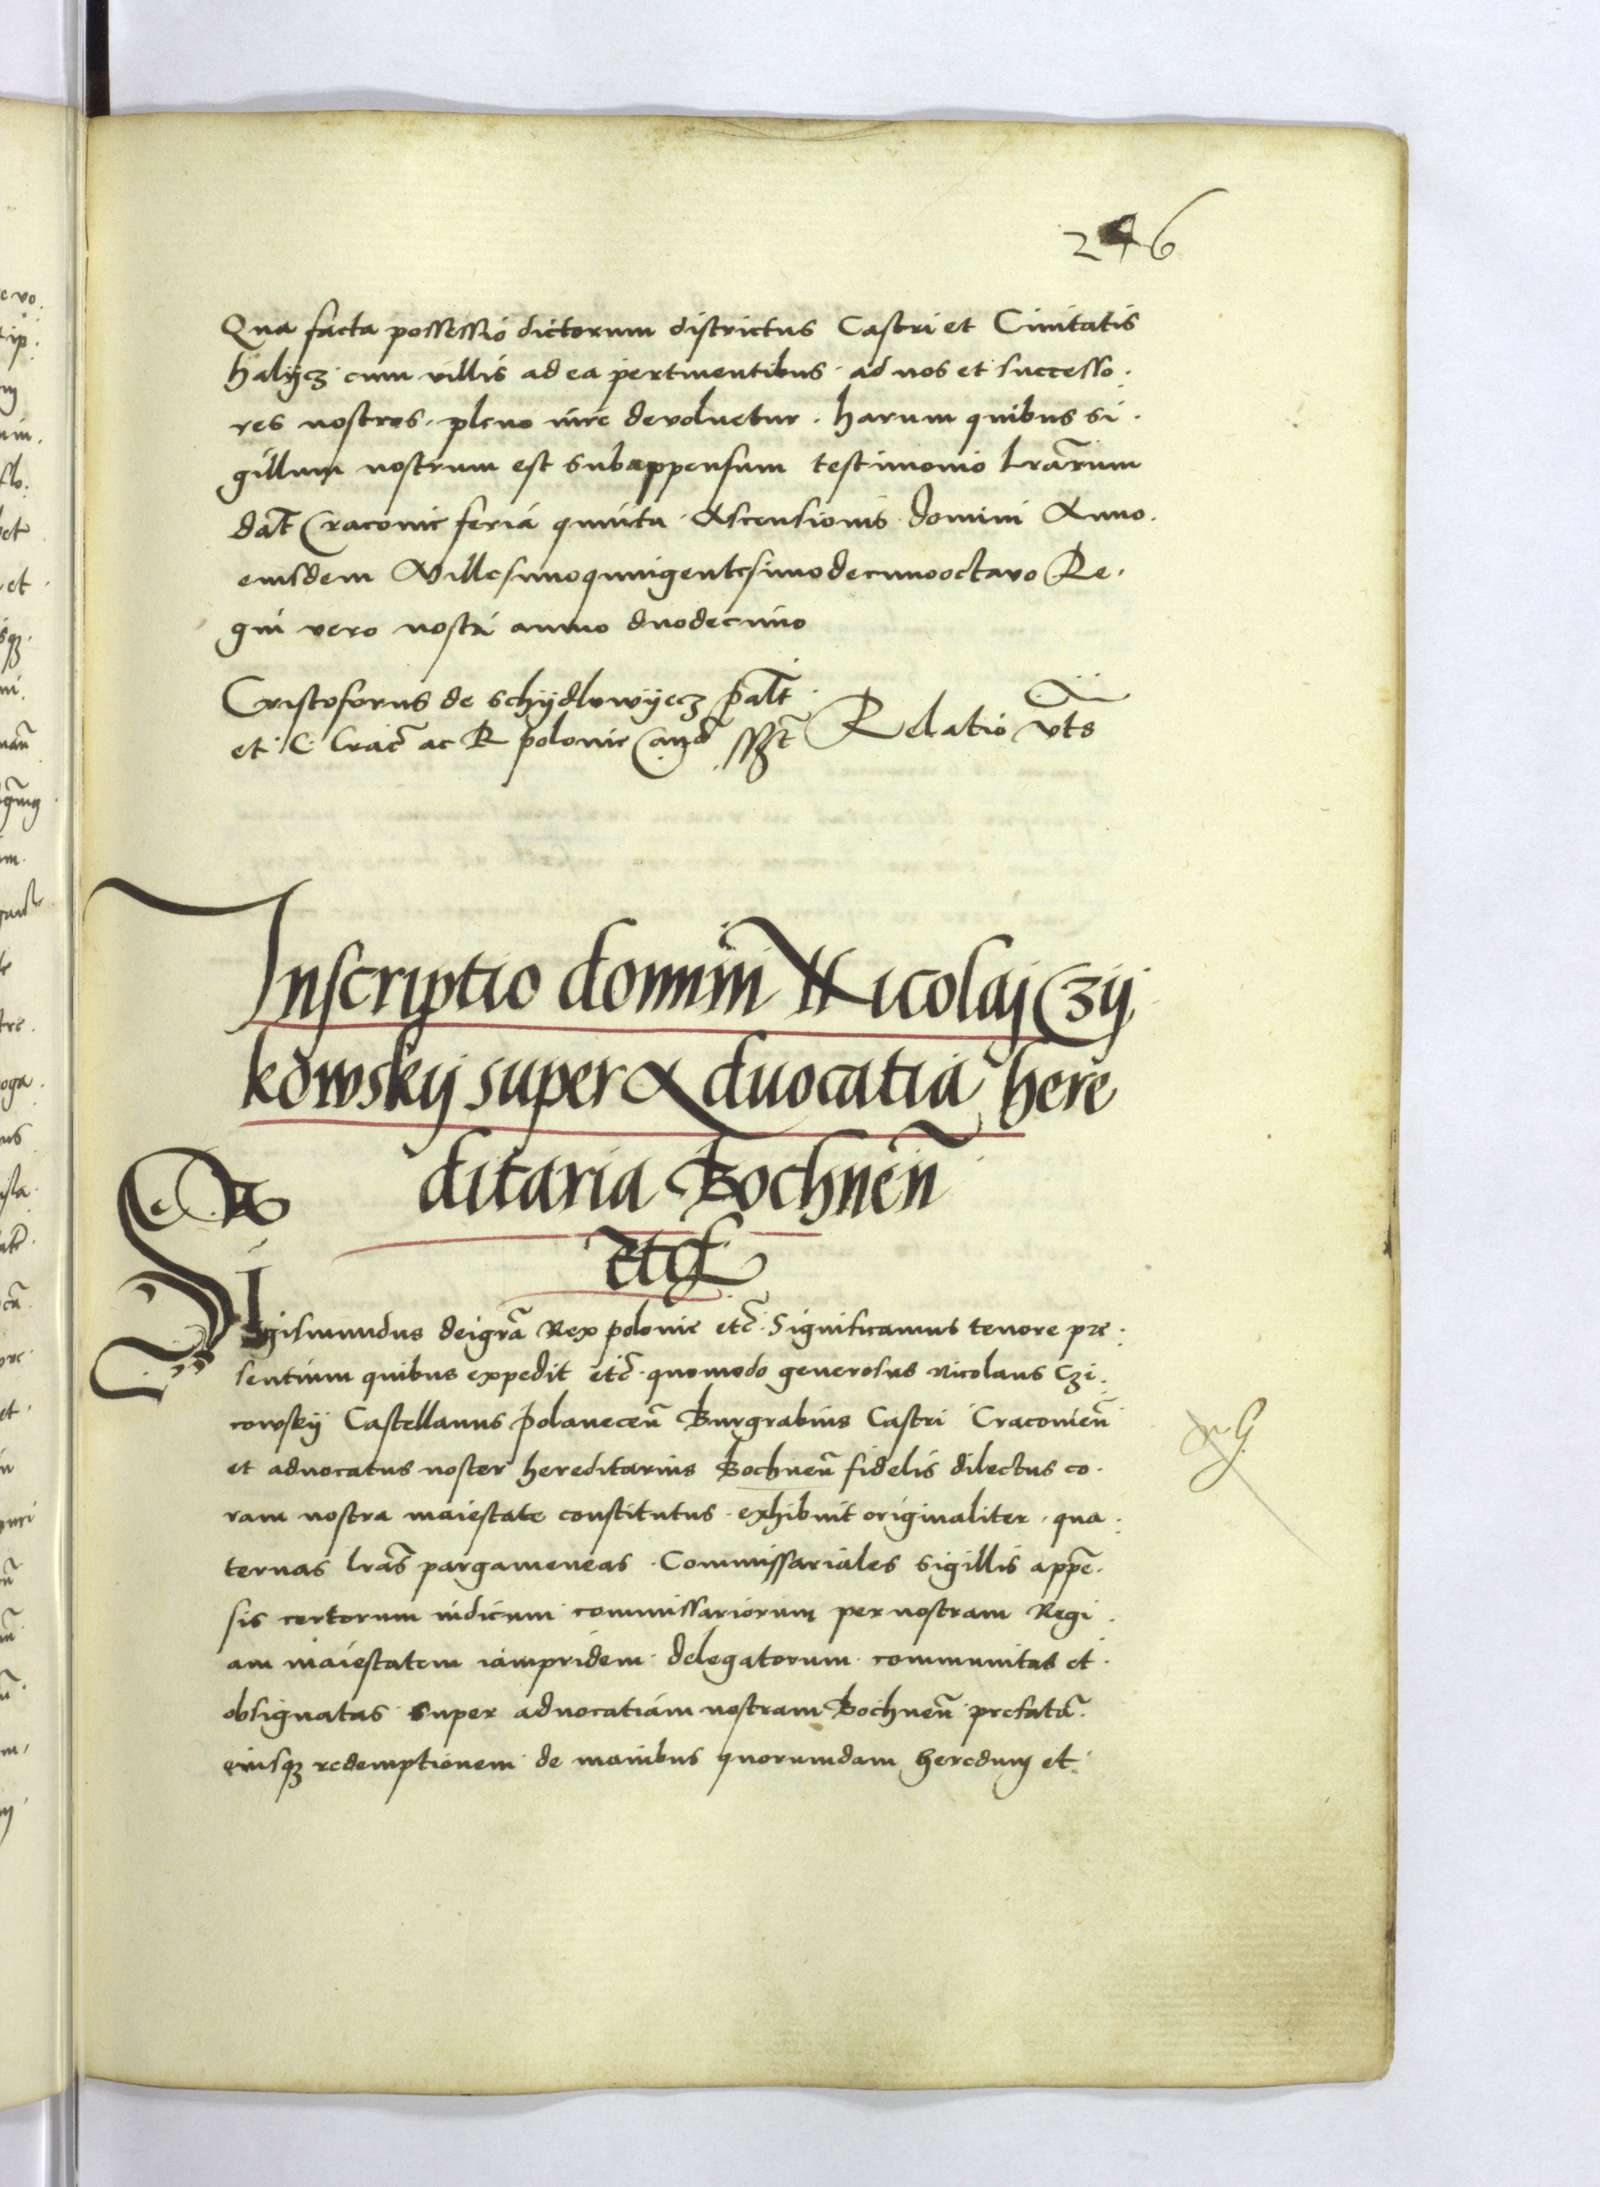 246
Qua facta possessio dictorum districtus Castri et Ciuitatis
halijcz cum villis ad ea pertinentibus ad nos et successo
res nostros pleno iure devoluetur. harum quibus si
gillum nostrum est subappensum testimonio lrãrum
dat̃ Cracouie feria quinta Ascensionis domini Anno
eiusdem Millesimoquingentesimodecimooctavo Re
gni vero nostri anno duodecimo
Cristoferus de schÿdlowÿecz palt̃
et C Crac̃ ac R polonie Canc̃ sszt̃ Relatio vts
Inscriptio domini Nicolaj Czij
kowskij super Aduocatia here
ditaria Bochneñ
etc
Sigismundus deigrã Rex polonie etc̃ Significamus tenore pre
sentium quibus expedit etc̃ quomodo generosus Nicolaus Czi
cowskÿ Castellanus polaneceñ Burgrabius Castri Cracouieñ
et aduocatus noster hereditarius Bochneñ fidelis dilectus co
ram nostra maiestate constitutus exhibuit originaliter qua
ternas lrãs pargameneas Commissariales sigillis appẽ
sis certorum iudicum commissariorum per nostram Regi
am maiestatem iampridem delegatorum communitas et
obsignatas super aduocatiam nostram Bochneñ prefatã
eiusqz redemptionem de manibus quorumdam heredum et